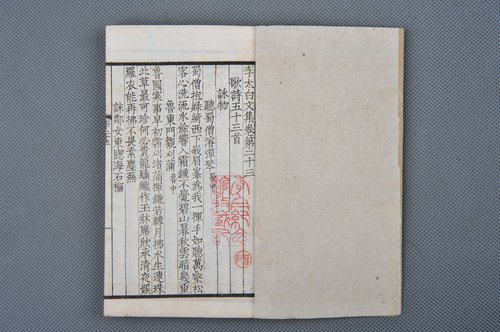 李太白文集卷第二十三
歌詩五十三首
詠物
聽蜀僧濬彈琴
蜀僧抱綠綺西下峩眉峯為我一揮手如聽萬壑松
客心洗流水餘響入霜鐘不覺碧山暮秋雲暗幾重
魯東門觀刈蒲 魯中
魯國寒事早初霜刈渚蒲揮鎌若轉月拂水生連珠
此草最可珍何必貴龍鬚織作玉牀席欣承清夜娛
羅衣能再拂不畏素塵蕪
詠鄰女東窓海石榴